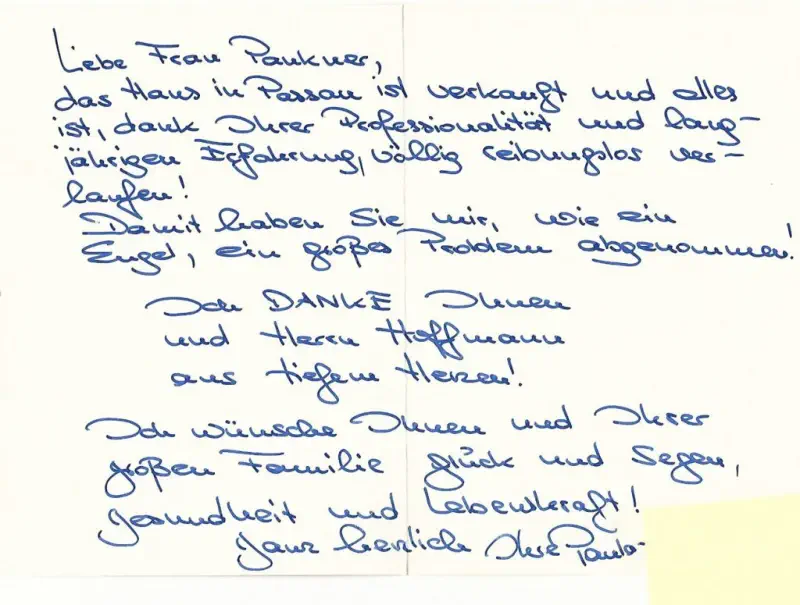 Liebe Frau Paukner,
das Haus in Passau ist verkauft und alles
ist, dank Ihrer Professionalität und lang-
jährigen Erfahrung, völlig reibungslos ver-
laufen!
Damit haben Sie mir, wie ein
Engel, ein großes Problem abgenommen!
Ich DANKE Ihnen
und Herrn Hoffmann
aus tiefem Herzen!
Ich wünsche Ihnen und Ihrer
großen Familie glück und Segen,
gesundheit und Lebenskraft!
Ganz herzlich Ihre